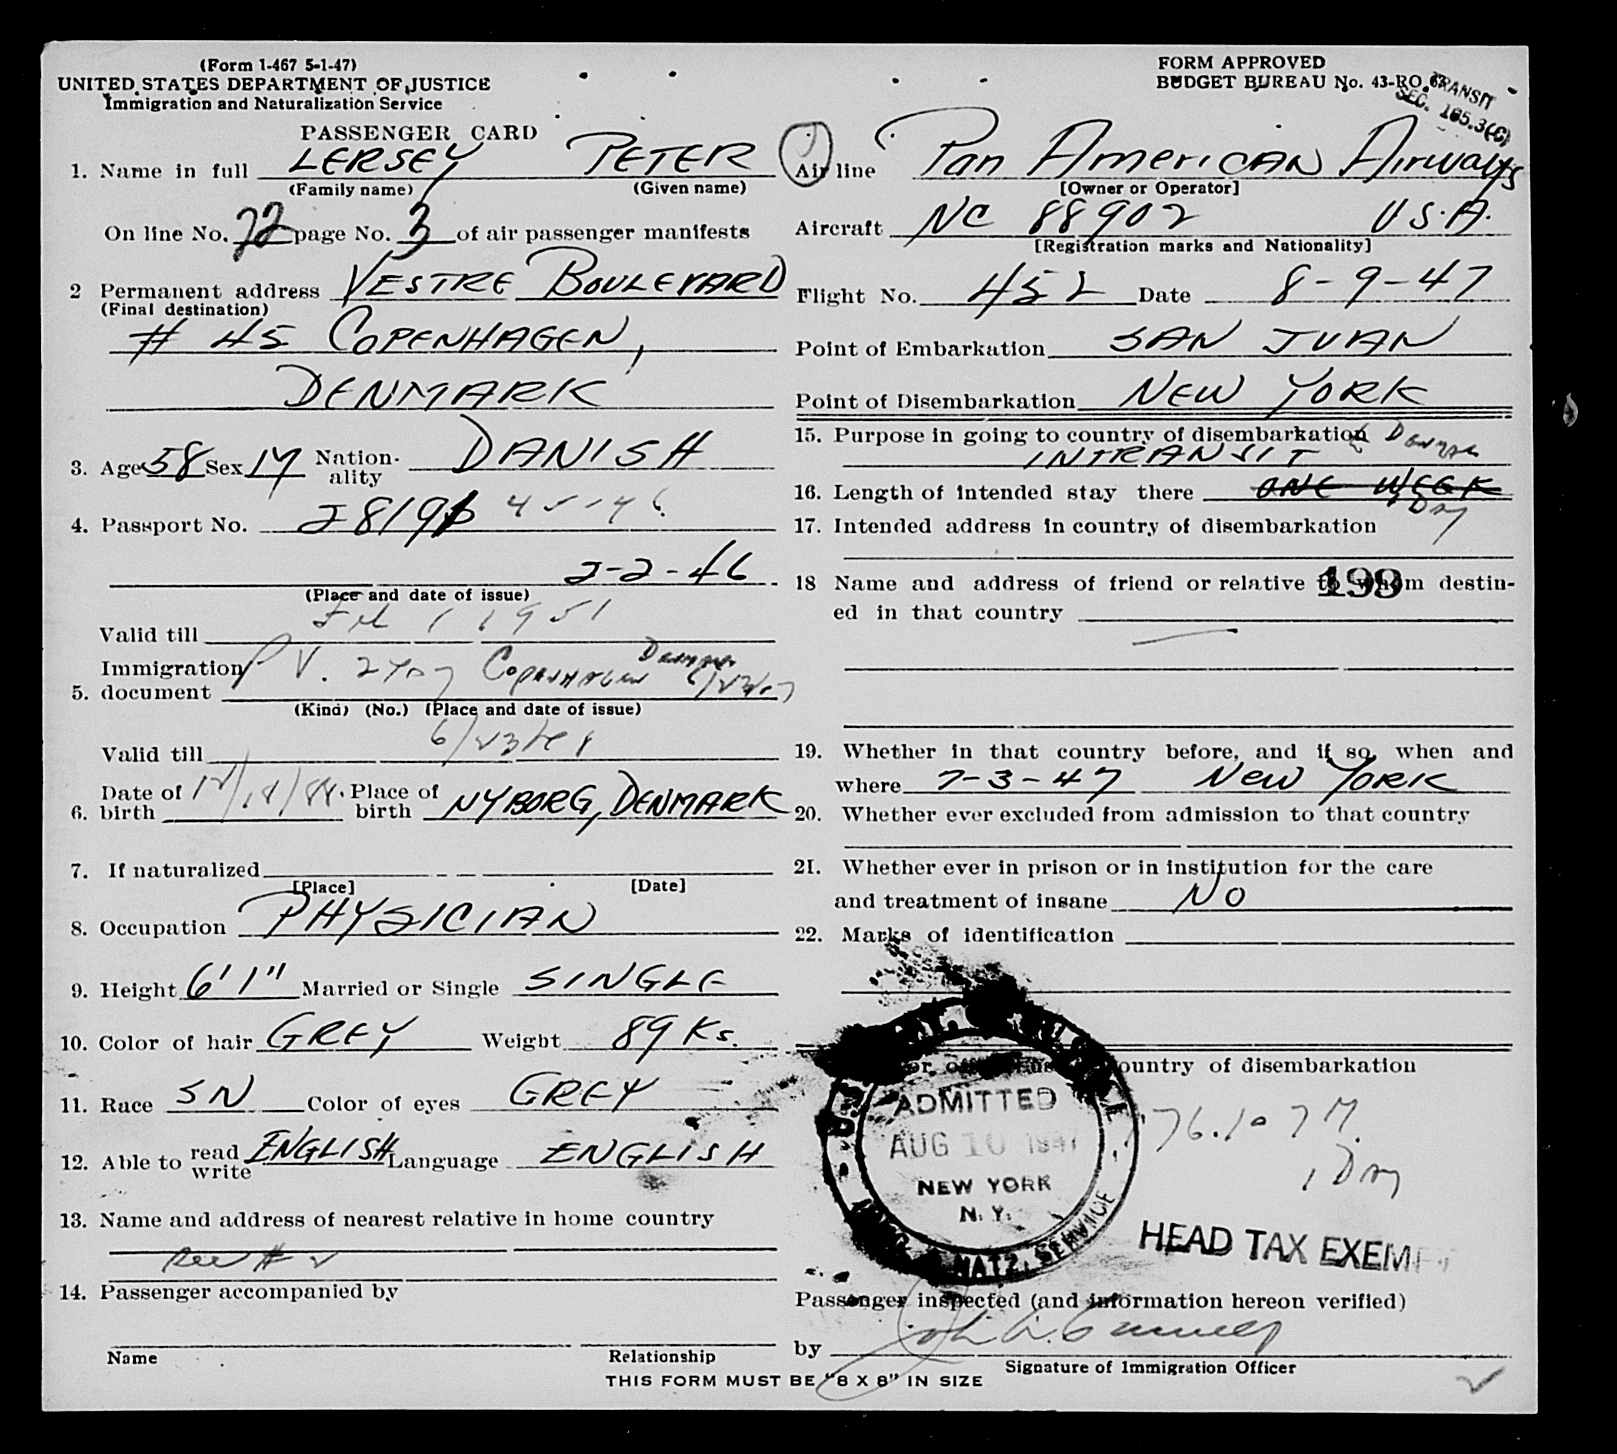 (Form 1-467 5-1-47)
UNITED STATES DEPARTMENT OF JUSTICE
Immigration and Naturalization Service
PASSENGER CARD
1. Name in full LERSEY PETER
(Family name) (Given name)
On line No. 22 page No. 3 of air passenger manifests
2 Permanent address VESTRE BOULEVARD
(Final destination)
# 45 COPENHAGEN,
DENMARK
3. Age 58 Sex M Nation-
ality DANISH
4. Passport No.
2-2-46
(Place and date of issue)
Valid till Feb 1 1951
Immigration
5. document P V. COPENHAGEN
(Kind) (No.) (Place and date of issue)
Valid till
Date of Place of
6. birth birth NYBORG, DENMARK
7. If naturalized
[Place] [Date]
8. Occupation PHYSICIAN
9. Height 6'1" Married or Single SINGLE
10. Color of hair GREY Weight 89 Ks.
11. Race SN Color of eyes GREY
12. Able to read
write ENGLISH Language ENGLISH
13. Name and address of nearest relative in home country
See # 2
14. Passenger accompanied by
Name Relationship
FORM APPROVED
BUDGET BUREAU No. 43-RO
TRANSIT
SEC. 165.3(C)
Air line Pan American Airways
[Owner or Operator]
Aircraft NC 88902 U.S.A.
[Registration marks and Nationality]
Flight No. 452 Date 8-9-47
Point of Embarkation SAN JUAN
Point of Disembarkation NEW YORK
15. Purpose in going to country of disembarkation
INTRANSIT
16. Length of intended stay there ONE WEEK
Day
17. Intended address in country of disembarkation
18 Name and address of friend or relative to whom destin-
199
ed in that country
19. Whether in that country before, and if so, when and
where 7-3-47 NEW YORK
20. Whether ever excluded from admission to that country
21. Whether ever in prison or in institution for the care
and treatment of insane NO
22. Marks of identification
country of disembarkation
ADMITTED
AUG 10 1947
NEW YORK
N. Y.
NATZ. SERVICE
1 Day
HEAD TAX EXEMPT
Passenger inspected (and information hereon verified)
by
Signature of Immigration Officer
THIS FORM MUST BE "8 X 8" IN SIZE